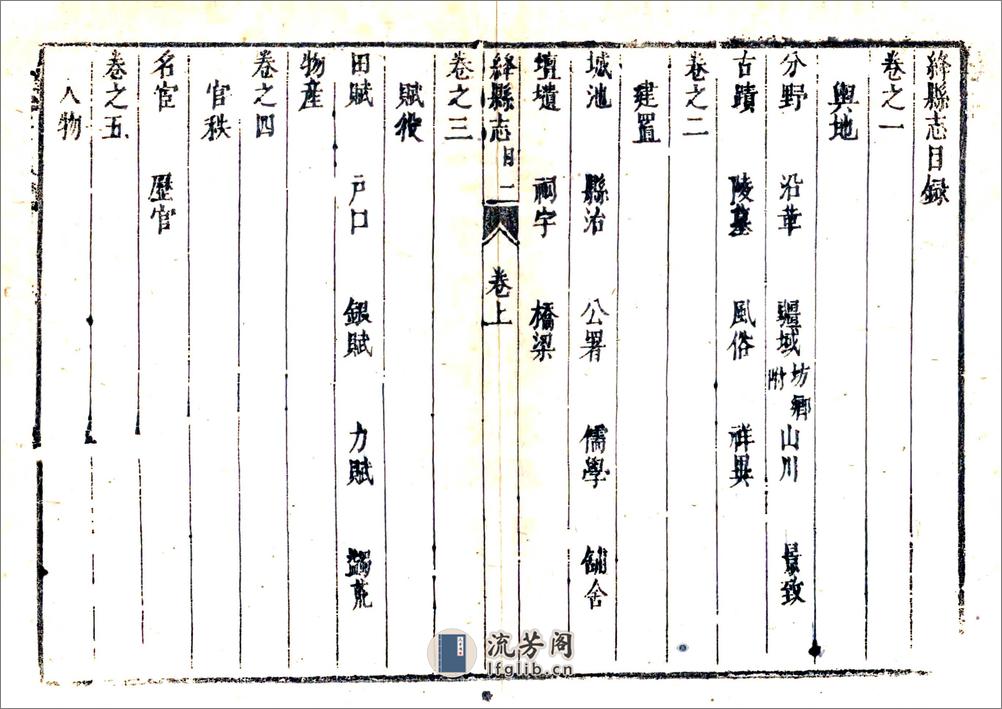 絳縣志目録
卷之一
輿地
分野 沿革 疆域 坊鄉附 山川 景致
古蹟 陵墓 風俗 祥異
卷之二
建置
城池 縣治 公署 儒學 舖舍
壇壝 祠宇 橋梁
絳縣志 目 二 卷上
卷之三
賦役
田賦 戸口 銀賦 力賦 蠲荒
物産
卷之四
官秩
名宦 歷官
卷之五
人物
流芳阁
lfglib.cn